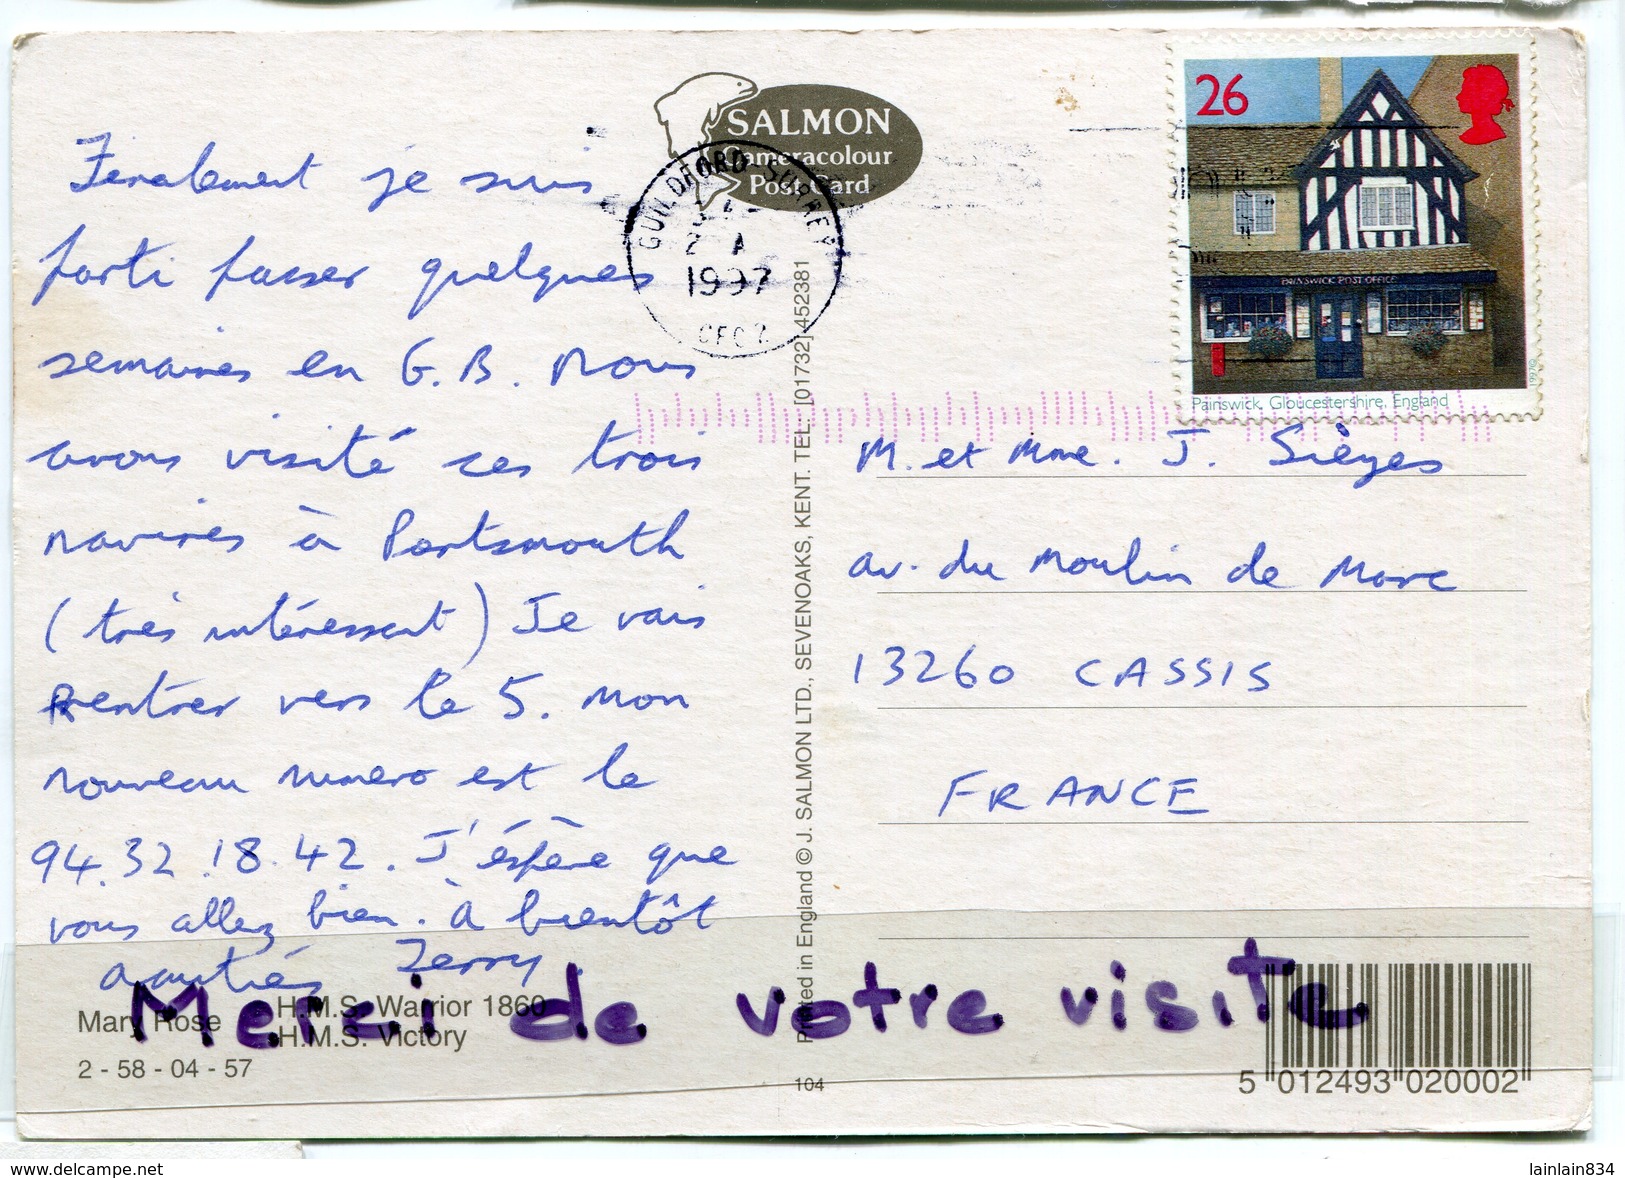 SALMON
Cameracolour
Post Card
26
PAINSWICK POST OFFICE
1997©
Painswick, Gloucestershire, England
GUILDFORD SURREY
2 A
1997
Finalement je suis
parti passer quelques
semaines en G.B. Nous
avons visité ces trois
navires à Portsmouth
(très intéressant) Je vais
rentrer vers le 5. Mon
nouveau numero est le
94.32.18.42. J'éspère que
vous allez bien. A bientôt
amitiés Terry.
M. et Mme. J. Sièyes
av. du Moulin de Marc
13260 CASSIS
FRANCE
Printed in England © J. SALMON LTD., SEVENOAKS, KENT. TEL: [01732] 452381
Merci de votre visite
Mary Rose
H.M.S. Warrior 1860
H.M.S. Victory
2 - 58 - 04 - 57
104
5 012493 020002
www.delcampe.net
lainlain834